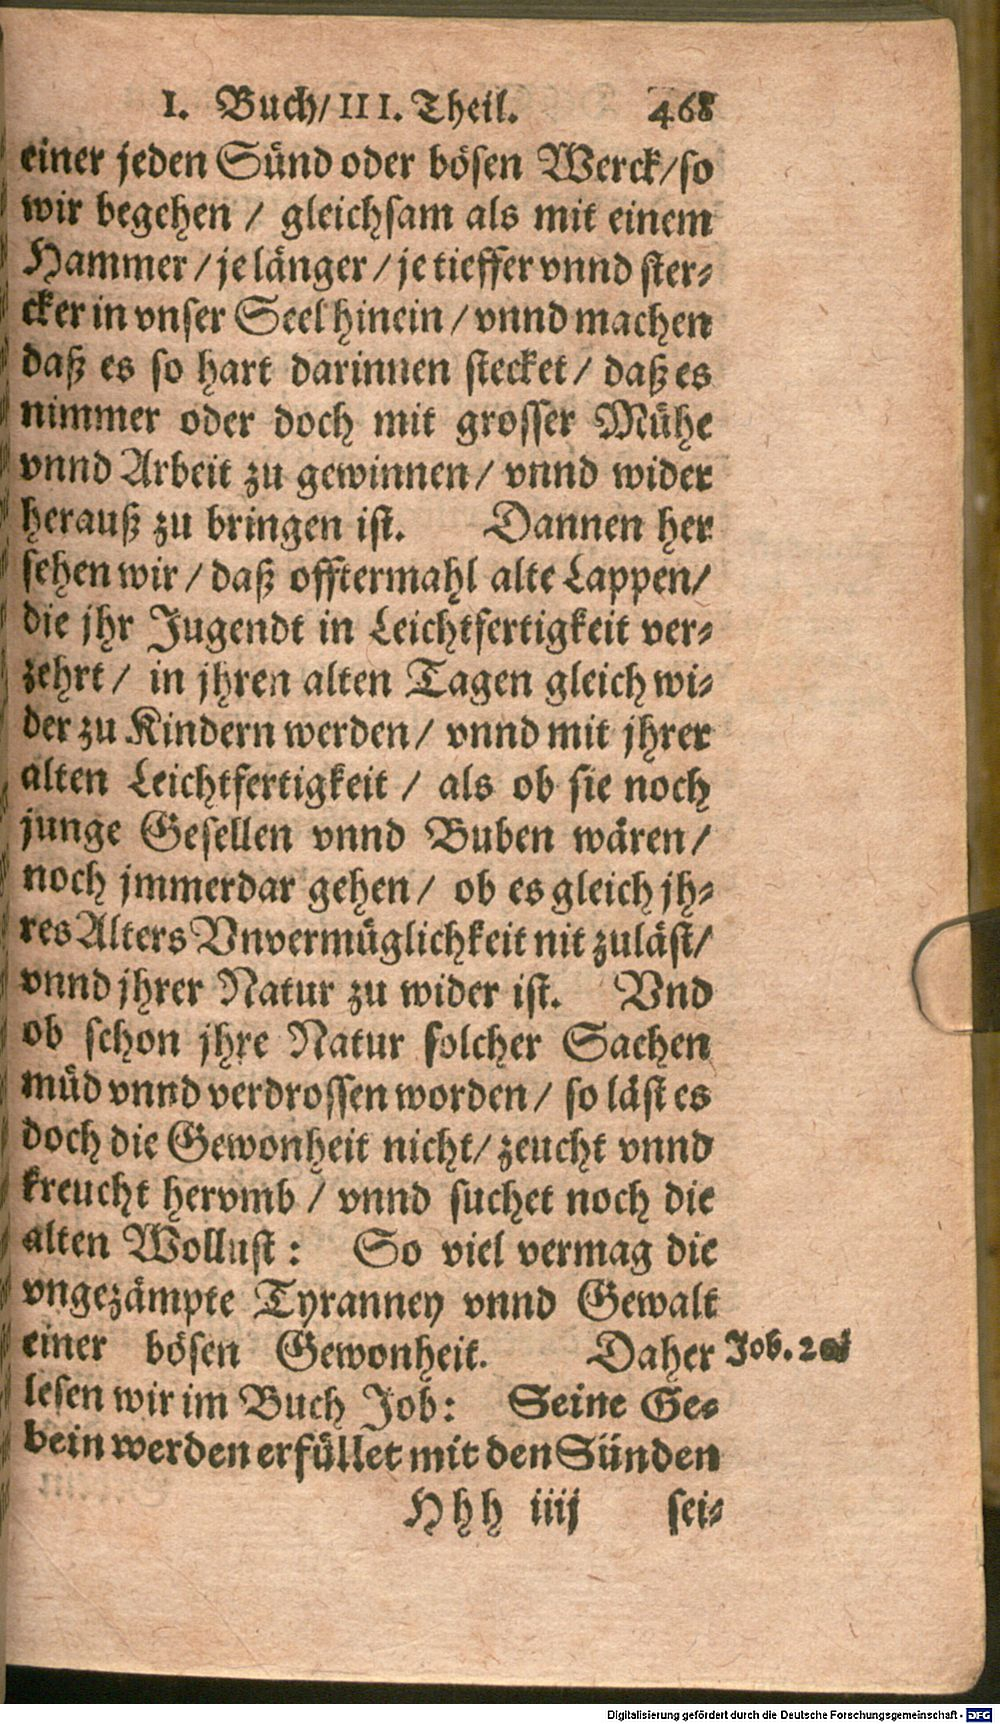 I. Buch/III. Theil. 468
einer jeden Sünd oder bösen Werck/so
wir begehen / gleichsam als mit einem
Hammer / je länger / je tieffer vnnd ster-
cker in vnser Seel hinein / vnnd machen
daß es so hart darinnen stecket / daß es
nimmer oder doch mit grosser Mühe
vnnd Arbeit zu gewinnen / vnnd wider
herauß zu bringen ist. Dannen her
sehen wir / daß offtermahl alte Lappen/
die jhr Jugendt in Leichtfertigkeit ver-
zehrt / in jhren alten Tagen gleich wi-
der zu Kindern werden / vnnd mit jhrer
alten Leichtfertigkeit / als ob sie noch
junge Gesellen vnnd Buben wären/
noch jmmerdar gehen / ob es gleich jh-
res Alters Vnvermüglichkeit nit zuläst/
vnnd jhrer Natur zu wider ist. Vnd
ob schon jhre Natur solcher Sachen
müd vnnd verdrossen worden / so läst es
doch die Gewonheit nicht/ zeucht vnnd
kreucht hervmb / vnnd suchet noch die
alten Wollust : So viel vermag die
vngezämpte Tyranney vnnd Gewalt
einer bösen Gewonheit. Daher
Job.
lesen wir im Buch Job: Seine Ge-
bein werden erfüllet mit den Sünden
Hhh iiij sei-
Digitalisierung gefördert durch die Deutsche Forschungsgemeinschaft - DFG